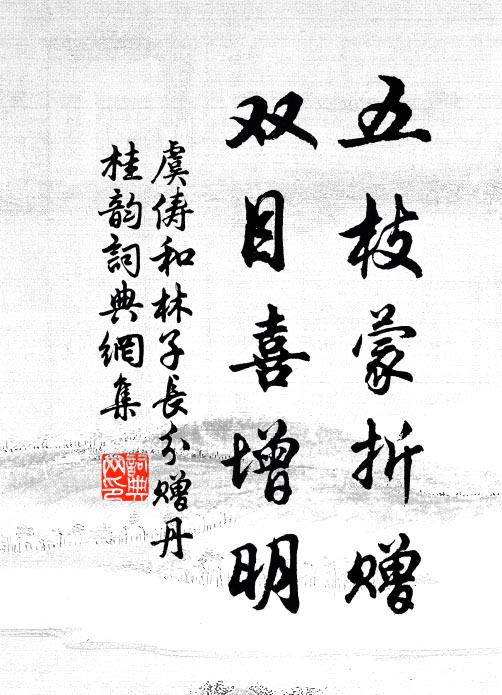 五枝蒙折赠
双目喜增明
虞俦和林子长分赠丹
桂韵詞典網集
詞典
网印